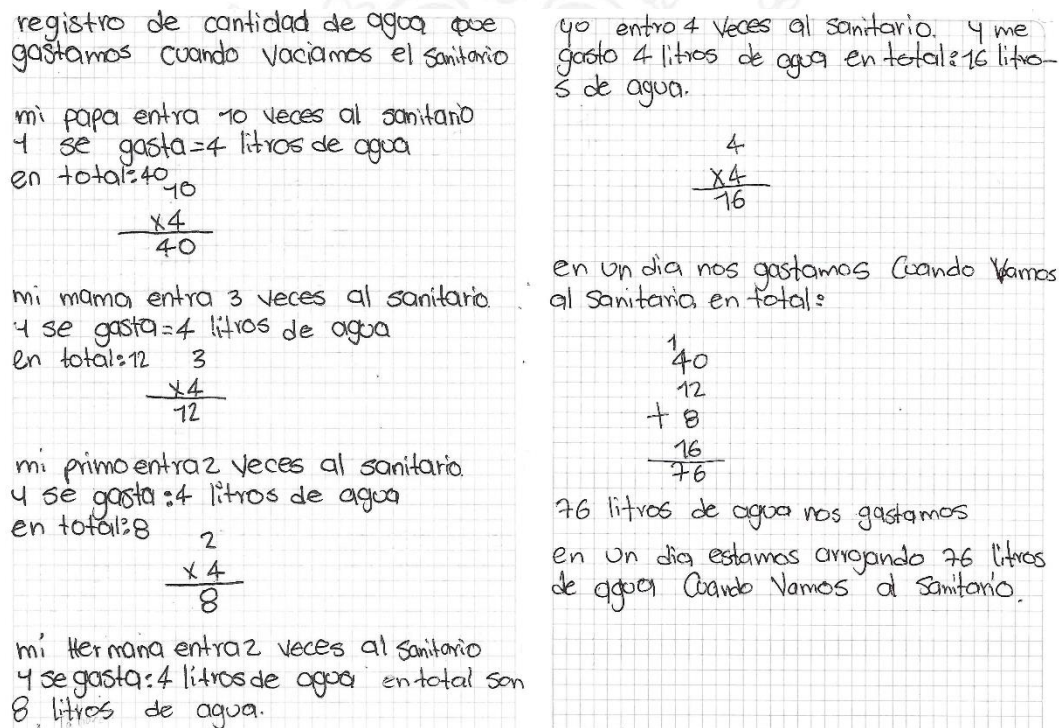 registro de cantidad de agua que
gastamos cuando vaciamos el sanitario
mi papa entra 10 veces al sanitario
y se gasta=4 litros de agua
en total:40
10
x4
40
mi mama entra 3 veces al sanitario.
y se gasta=4 litros de agua
en total:12
3
x4
12
mi primo entra 2 veces al sanitario.
y se gasta:4 litros de agua
en total:8
2
x 4
8
mi Hermana entra 2 veces al sanitario
y se gasta:4 litros de agua en total son
8 litros de agua.
yo entro 4 veces al sanitario. y me
gasto 4 litros de agua en total:16 litro-
s de agua.
4
x4
16
en un dia nos gastamos Cuando Vamos
al sanitario en total:
1
40
12
+ 8
16
76
76 litros de agua nos gastamos
en un dia estamos arrojando 76 litros
de agua Cuando Vamos al sanitario.